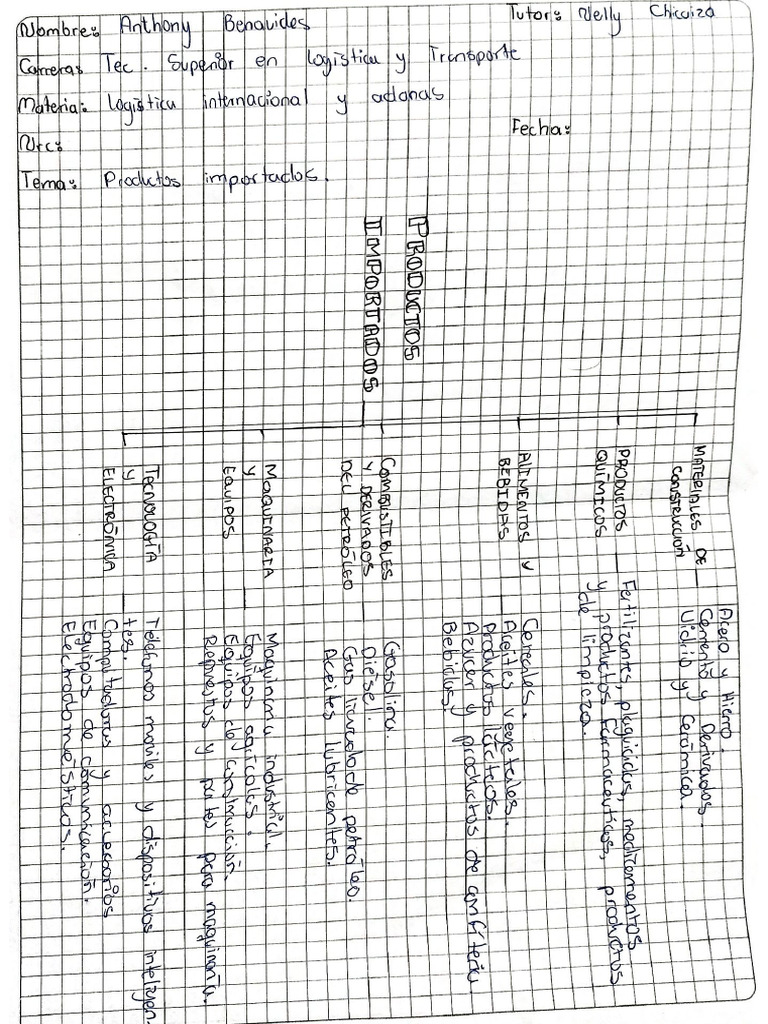 Nombre: Anthony Benavides
Tutor: Nelly Chicaiza
Carrera: Tec. Superior en logística y Transporte
Materia: Logística internacional y adanas
Nrc:
Fecha:
Tema: Productos importados.
PRODUCTOS
IMPORTADOS
MATERIALES DE
CONSTRUCCIÓN
Acero y Hierro.
Cemento y Derivados.
Vidrio y Cerámica.
PRODUCTOS
QUÍMICOS
Fertilizantes, plaguicidas, medicamentos
y productos farmaceuticos, productos
de limpieza.
ALIMENTOS Y
BEBIDAS
Cereales.
Aceites vegetales.
Productos lácteos.
Azúcar y productos de confitería
Bebidas.
COMBUSTIBLES
Y DERIVADOS
DEL PETRÓLEO
Gasolina.
Diésel.
Gas licuado de petróleo.
Aceites lubricantes.
MAQUINARIA
Y
EQUIPOS
Maquinaria industrial.
Equipos agrícolas.
Equipos de construcción.
Repuestos y partes para maquinaria.
TECNOLOGÍA
Y
ELECTRÓNICA
Teléfonos moviles y dispositivos inteligen-
tes.
Computadoras y accesorios
Equipos de comunicación.
Electrodomésticos.